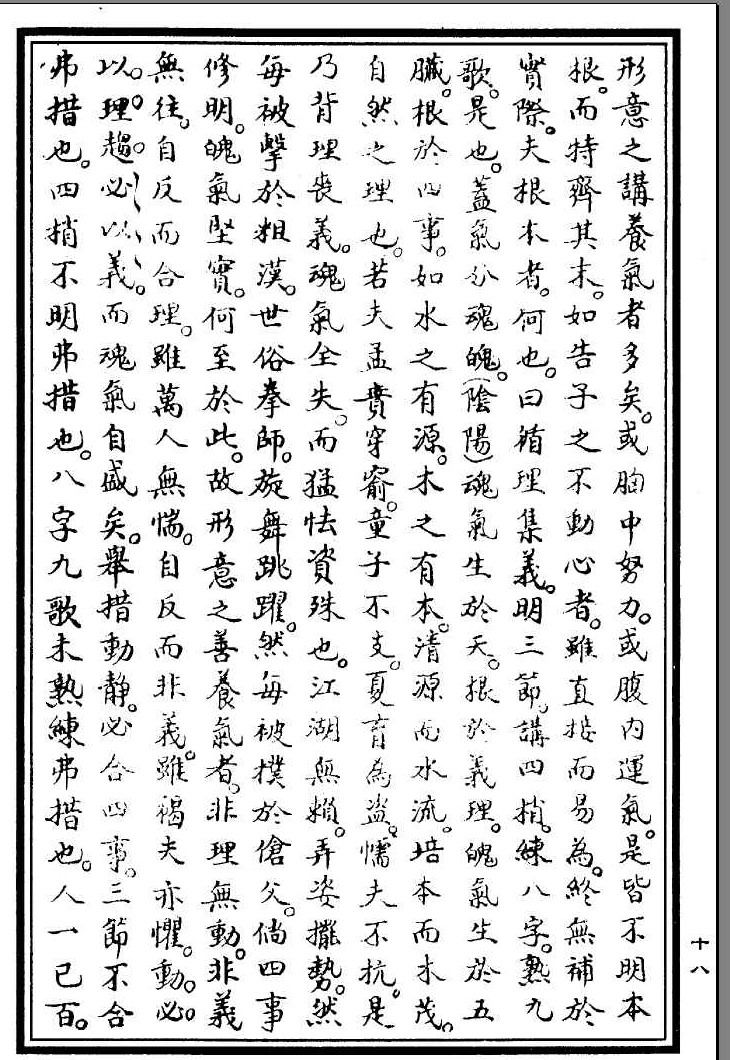 形意之講養氣者多矣。或胸中努力。或腹內運氣。是皆不明本
根。而特齊其末。如告子之不動心者。雖直捷而易為。終無補於
實際。夫根本者。何也。曰循理集義。明三節。講四梢。練八字。熟九
歌。是也。蓋氣分魂魄。(陰陽)魂氣生於天。根於義理。魄氣生於五
臟。根於四事。如水之有源。木之有本。清源而水流。培本而木茂。
自然之理也。若夫孟賁穿窬。童子不支。夏育為盜。懦夫不抗。是
乃背理喪義。魂氣全失。而猛怯資殊也。江湖無賴。弄姿擺勢。然
每被擊於粗漢。世俗拳師。旋舞跳躍。然每被撲於傖父。倘四事
修明。魄氣堅實。何至於此。故形意之善養氣者。非理無動。非義
無往。自反而合理。雖萬人無惴。自反而非義。雖褐夫亦懼。動。必。
以。理。趨。必以義。而魂氣自盛矣。舉措動靜。必合四事。三節不合
弗措也。四梢不明弗措也。八字九歌未熟練弗措也。人一已百。
十八